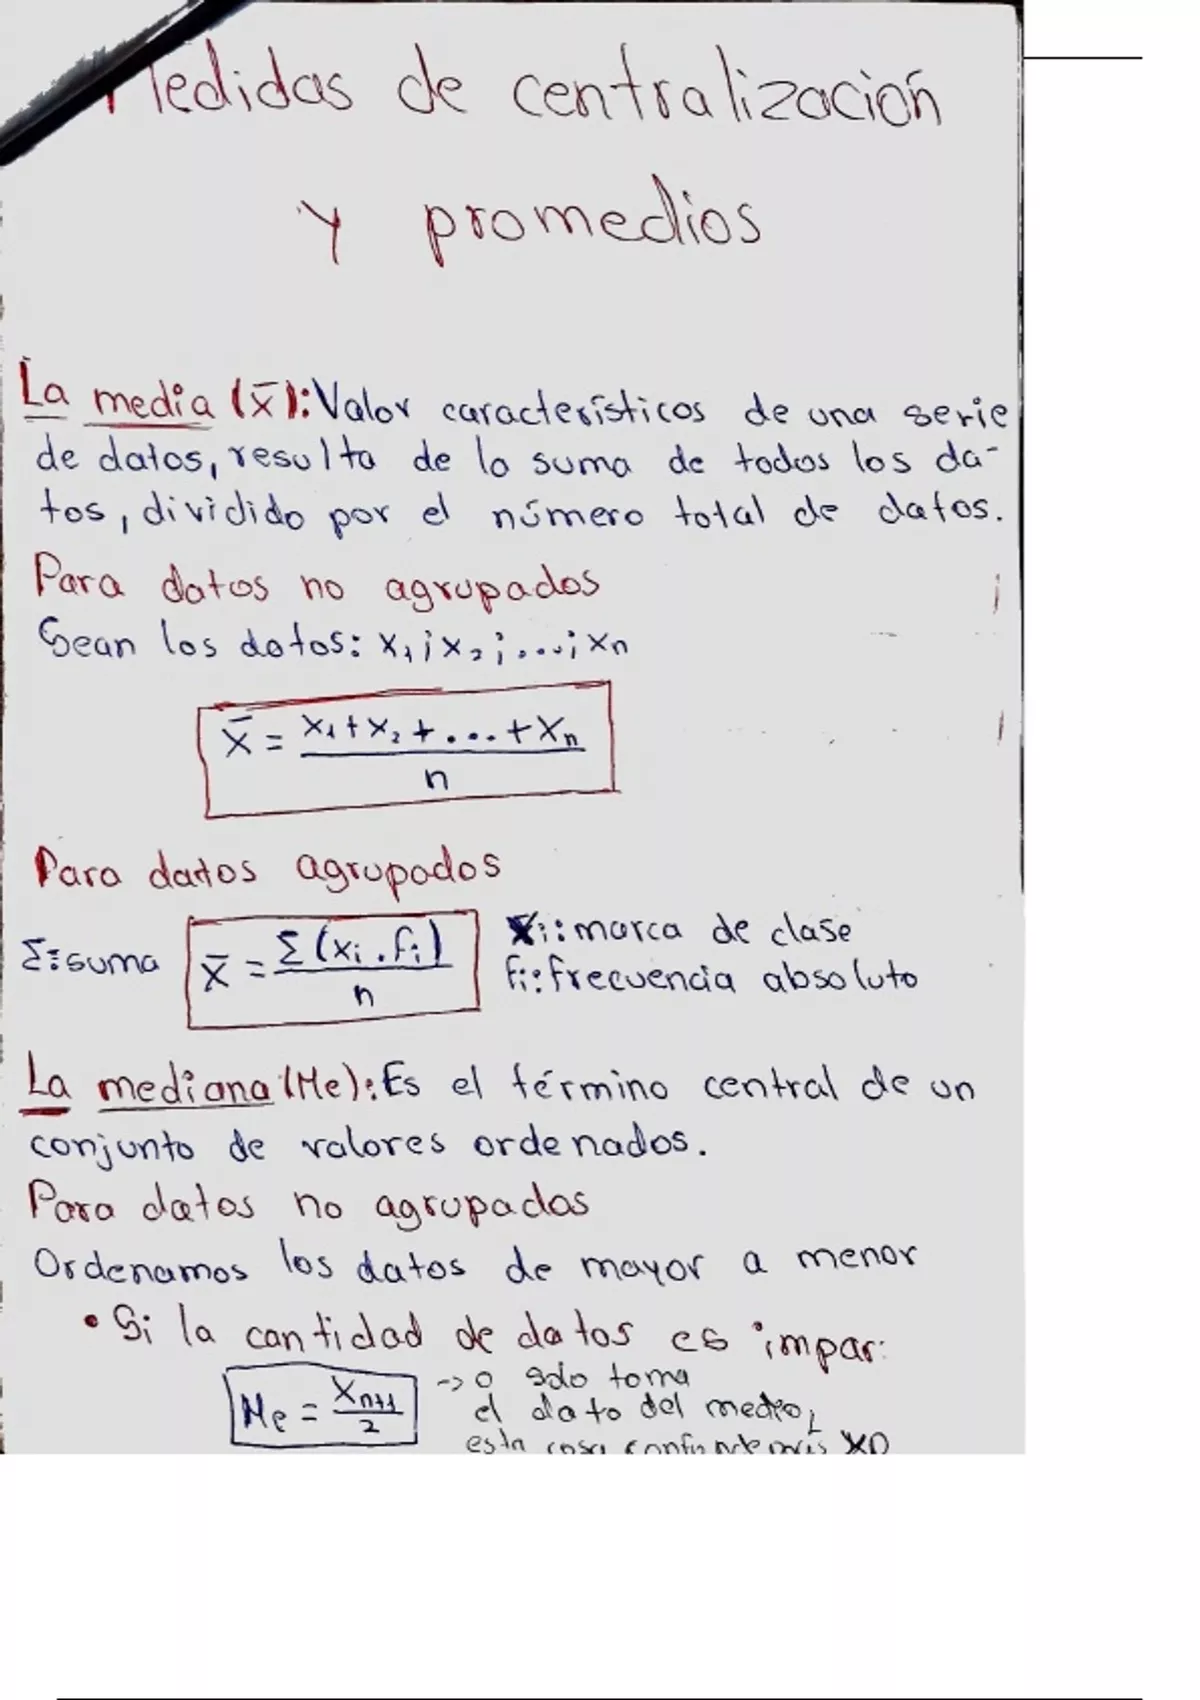 Medidas de centralización
y promedios
La media (x̄): Valor característicos de una serie
de datos, resulta de la suma de todos los da-
tos, dividido por el número total de datos.
Para datos no agrupados
Sean los datos: x₁; x₂; ...; xn
x̄ = x₁ + x₂ + ... + xn
n
Para datos agrupados
Σ: suma x̄ = Σ(xi . fi) xi: marca de clase
n fi: frecuencia absoluta
La mediana (Me): Es el término central de un
conjunto de valores ordenados.
Para datos no agrupados
Ordenamos los datos de mayor a menor
• Si la cantidad de datos es impar:
Me = Xn+1 -> o solo toma
2 el dato del medio,
esta cosa confunde más XD